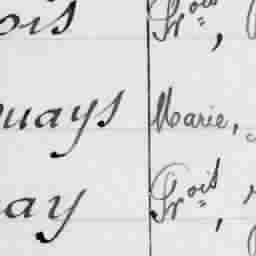 ois Frois,
uays Marie,
ay Frois,